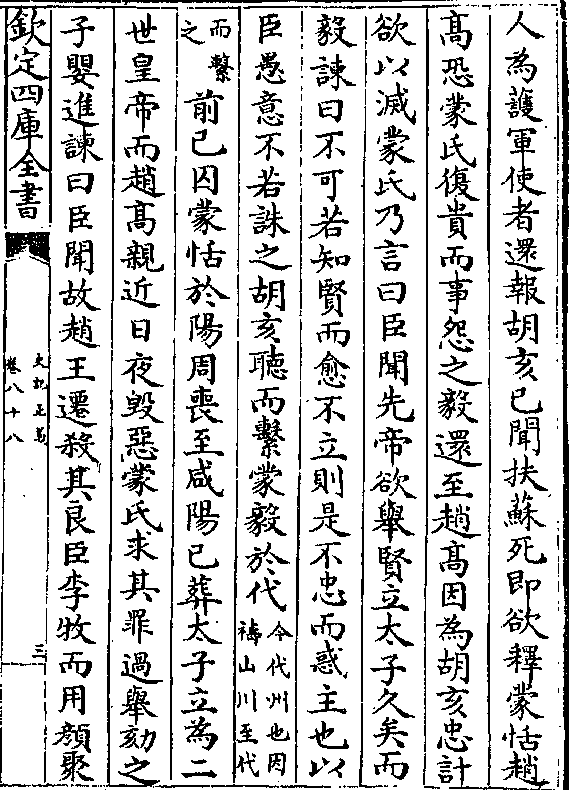 人為䕶軍使者還報胡亥已聞扶蘇死即欲釋蒙恬趙
髙恐蒙氏復貴而事怨之毅還至趙髙因為胡亥忠計
欲以滅蒙氏乃言曰臣聞先帝欲舉賢立太子久矣而
毅諫曰不可若知賢而愈不立則是不忠而惑主也以
臣愚意不若誅之胡亥聽而繫蒙毅於代今代州也因禱山川至代
而繫之前已囚蒙恬於陽周喪至咸陽已葬太子立為二
世皇帝而趙髙親近日夜毁惡蒙氏求其罪過舉劾之
子嬰進諫曰臣聞故趙王遷殺其良臣李牧而用顔聚
欽定四庫全書
史記正義
卷八十八
三